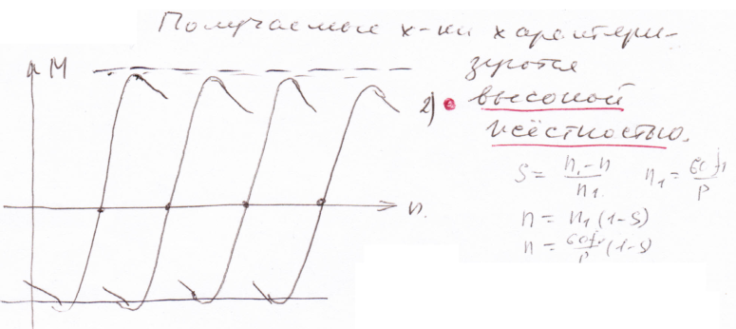 Получаемые х-ки характери-
зуются
2) высокой
жёсткостью.
M
n.
S = (n₁ - n)/n₁   n₁ = 60f₁/p
n = n₁(1-S)
n = 60f₁/p (1-S)